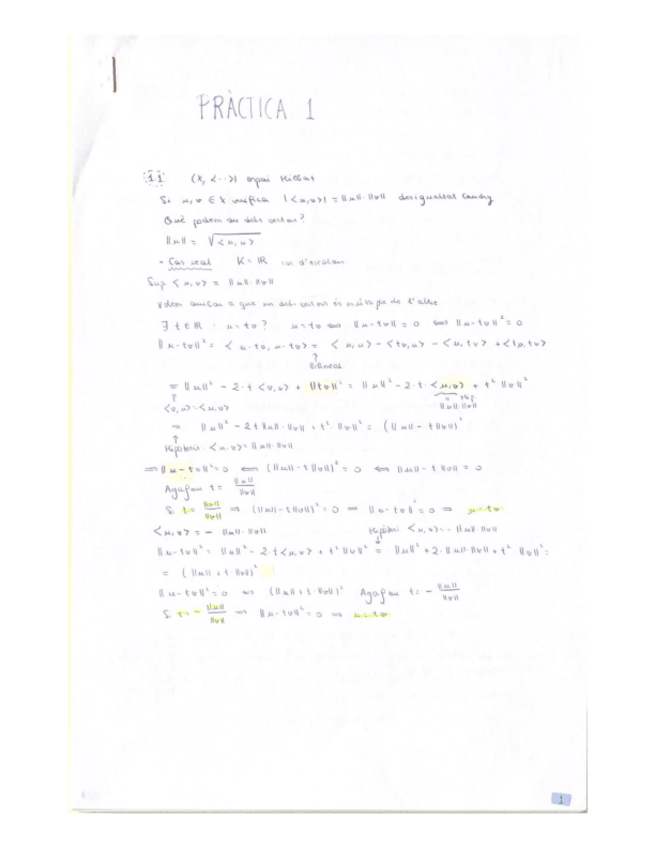 PRÀCTICA 1
1.1 (X, <·,·>) espai Hilbert
Si u, v ∈ X verifica |<u,v>| = ||u||·||v|| desigualtat Cauchy
Què podem dir dels vectors?
||u|| = √<u, u>
- Cas real K = ℝ cos d'escalars
Sup <u, v> = ||u||·||v||
Volem a que un dels vectors és múltiple de l'altre
∃ t ∈ ℝ : u = tv ? u = tv ⟺ ||u - tv|| = 0 ⟺ ||u - tv||² = 0
||u - tv||² = <u - tv, u - tv> = <u, u> - <tv, u> - <u, tv> + <tv, tv>
↑
bilineal
= ||u||² - 2·t <u, v> + ||tv||² = ||u||² - 2·t·<u, v> + t² ||v||²
↑ = Hip.
<v, u> = <u, v> ||u||·||v||
= ||u||² - 2t ||u||·||v|| + t²·||v||² = (||u|| - t||v||)²
↑
Hipòtesis: <u, v> = ||u||·||v||
⟹ ||u - tv||² = 0 ⟺ (||u|| - t||v||)² = 0 ⟺ ||u|| - t||v|| = 0
Agafem t = ||u||/||v||
Si t = ||u||/||v|| ⟹ (||u|| - t||v||)² = 0 ⟹ ||u - tv||² = 0 ⟹ u = tv
<u, v> = - ||u||·||v|| Hipòtesi <u, v> = - ||u||·||v||
||u - tv||² = ||u||² - 2·t <u, v> + t² ||v||² = ||u||² + 2·||u||·||v||·t + t²·||v||² =
= (||u|| + t·||v||)²
||u - tv||² = 0 ⟺ (||u|| + t·||v||)² Agafem t = - ||u||/||v||
Si t = - ||u||/||v|| ⟹ ||u - tv||² = 0 ⟹ u = tv
1